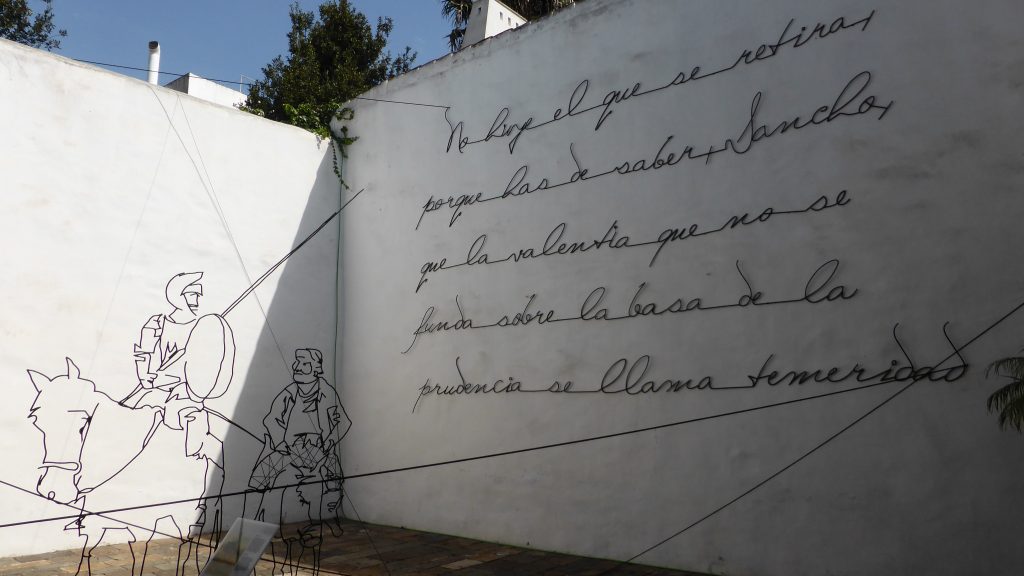 No huye el que se retira,
porque has de saber, Sancho,
que la valentia que no se
funda sobre la basa de la
prudencia se llama temeridad